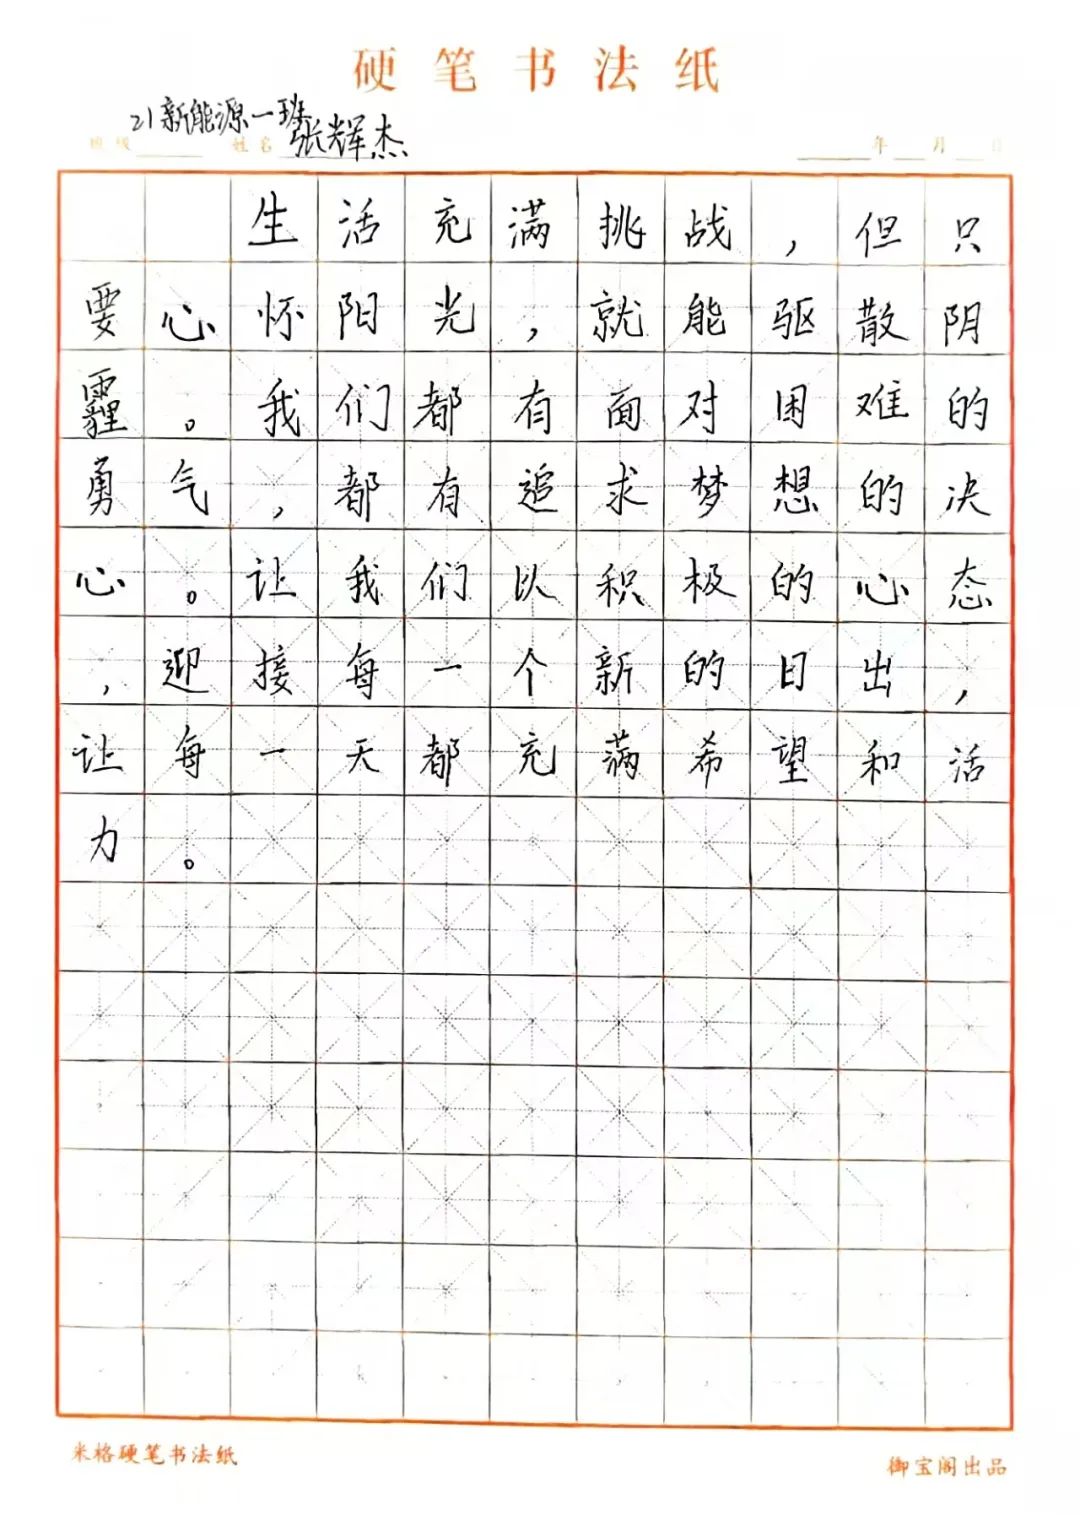 硬笔书法纸
21新能源一班
班级 姓名 张辉杰 年 月 日
生活充满挑战，但只
要心怀阳光，就能驱散阴
霾。我们都有面对困难的
勇气，都有追求梦想的决
心。让我们以积极的心态
，迎接每一个新的日出，
让每一天都充满希望和活
力。
米格硬笔书法纸
御宝阁出品